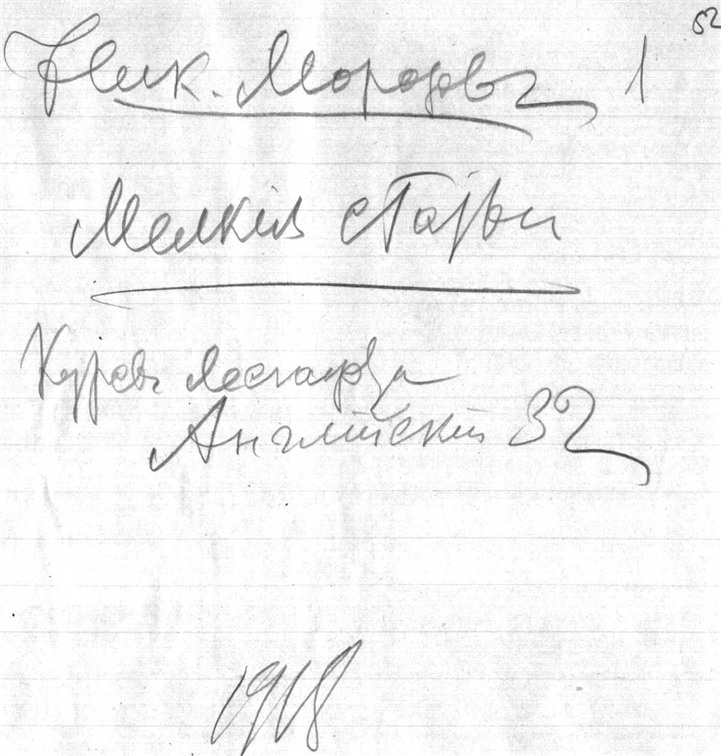 52
Ник. Морозовъ 1
Мелкія статьи
Курсы Лесгафта
Англійскій 32
1918